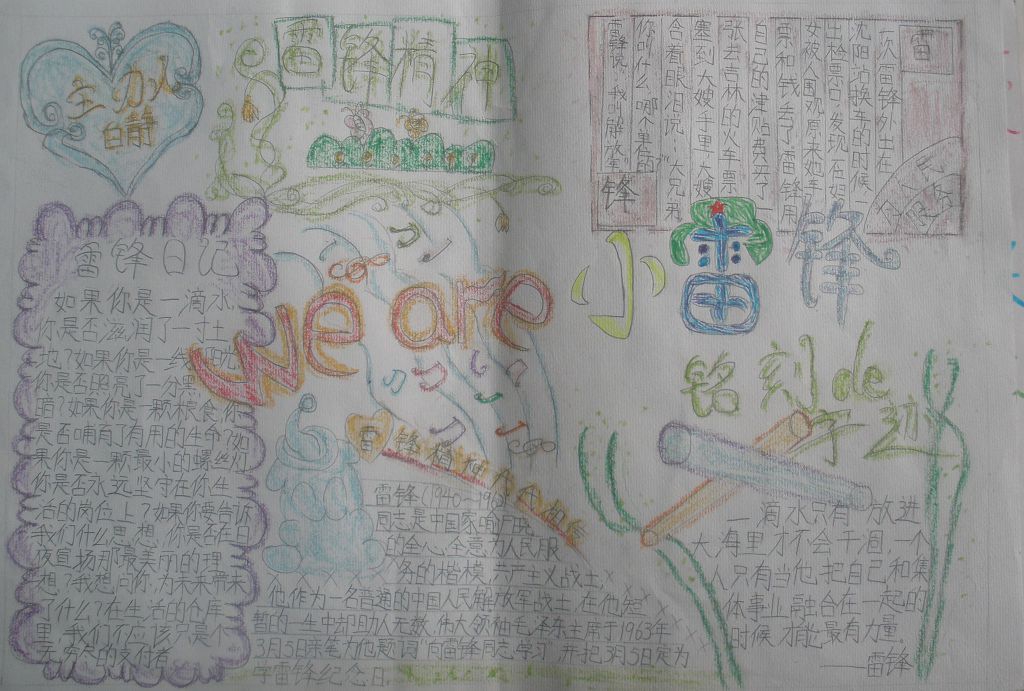 主办人
白静
雷锋精神
雷
锋
一次雷锋外出在
沈阳站换车的时候一
出检票口发现一位妇
女被人围观原来她车
票和钱丢了雷锋用
自己的津贴费买了一
张去吉林的火车票
塞到大嫂手里大嫂
含着眼泪说：大兄弟
你叫什么哪个单位的
雷锋说：我叫解放军
we are 小雷锋
雷锋日记
如果你是一滴水
你是否滋润了一寸土
地？如果你是一线阳光
你是否照亮了一分黑
暗？如果你是一颗粮食你
是否哺育了有用的生命？如
果你是一颗最小的螺丝钉
你是否永远坚守在你生
活的岗位上？如果你要告诉
我们什么思想，你是否在日
夜宣扬那最美丽的理
想？我想问你，为未来带来
了什么？在生活的仓库
里，我们不应该只是个
无穷尽的支付者
铭刻de
字迹
雷锋精神
雷锋(1940-1962)
同志是中国家
的全心全意为人民服
务的楷模，共产主义战士，
他作为一名普通的中国人民解放军战士，在他短
暂的一生中却助人无数，伟大领袖毛泽东主席于1963年
3月5日亲笔为他题词"向雷锋同志学习"并把3月5日定为
学雷锋纪念日
一滴水只有放进
大海里才不会干涸，一个
人只有当他把自己和集
体事业融合在一起的
时候才能最有力量。
——雷锋